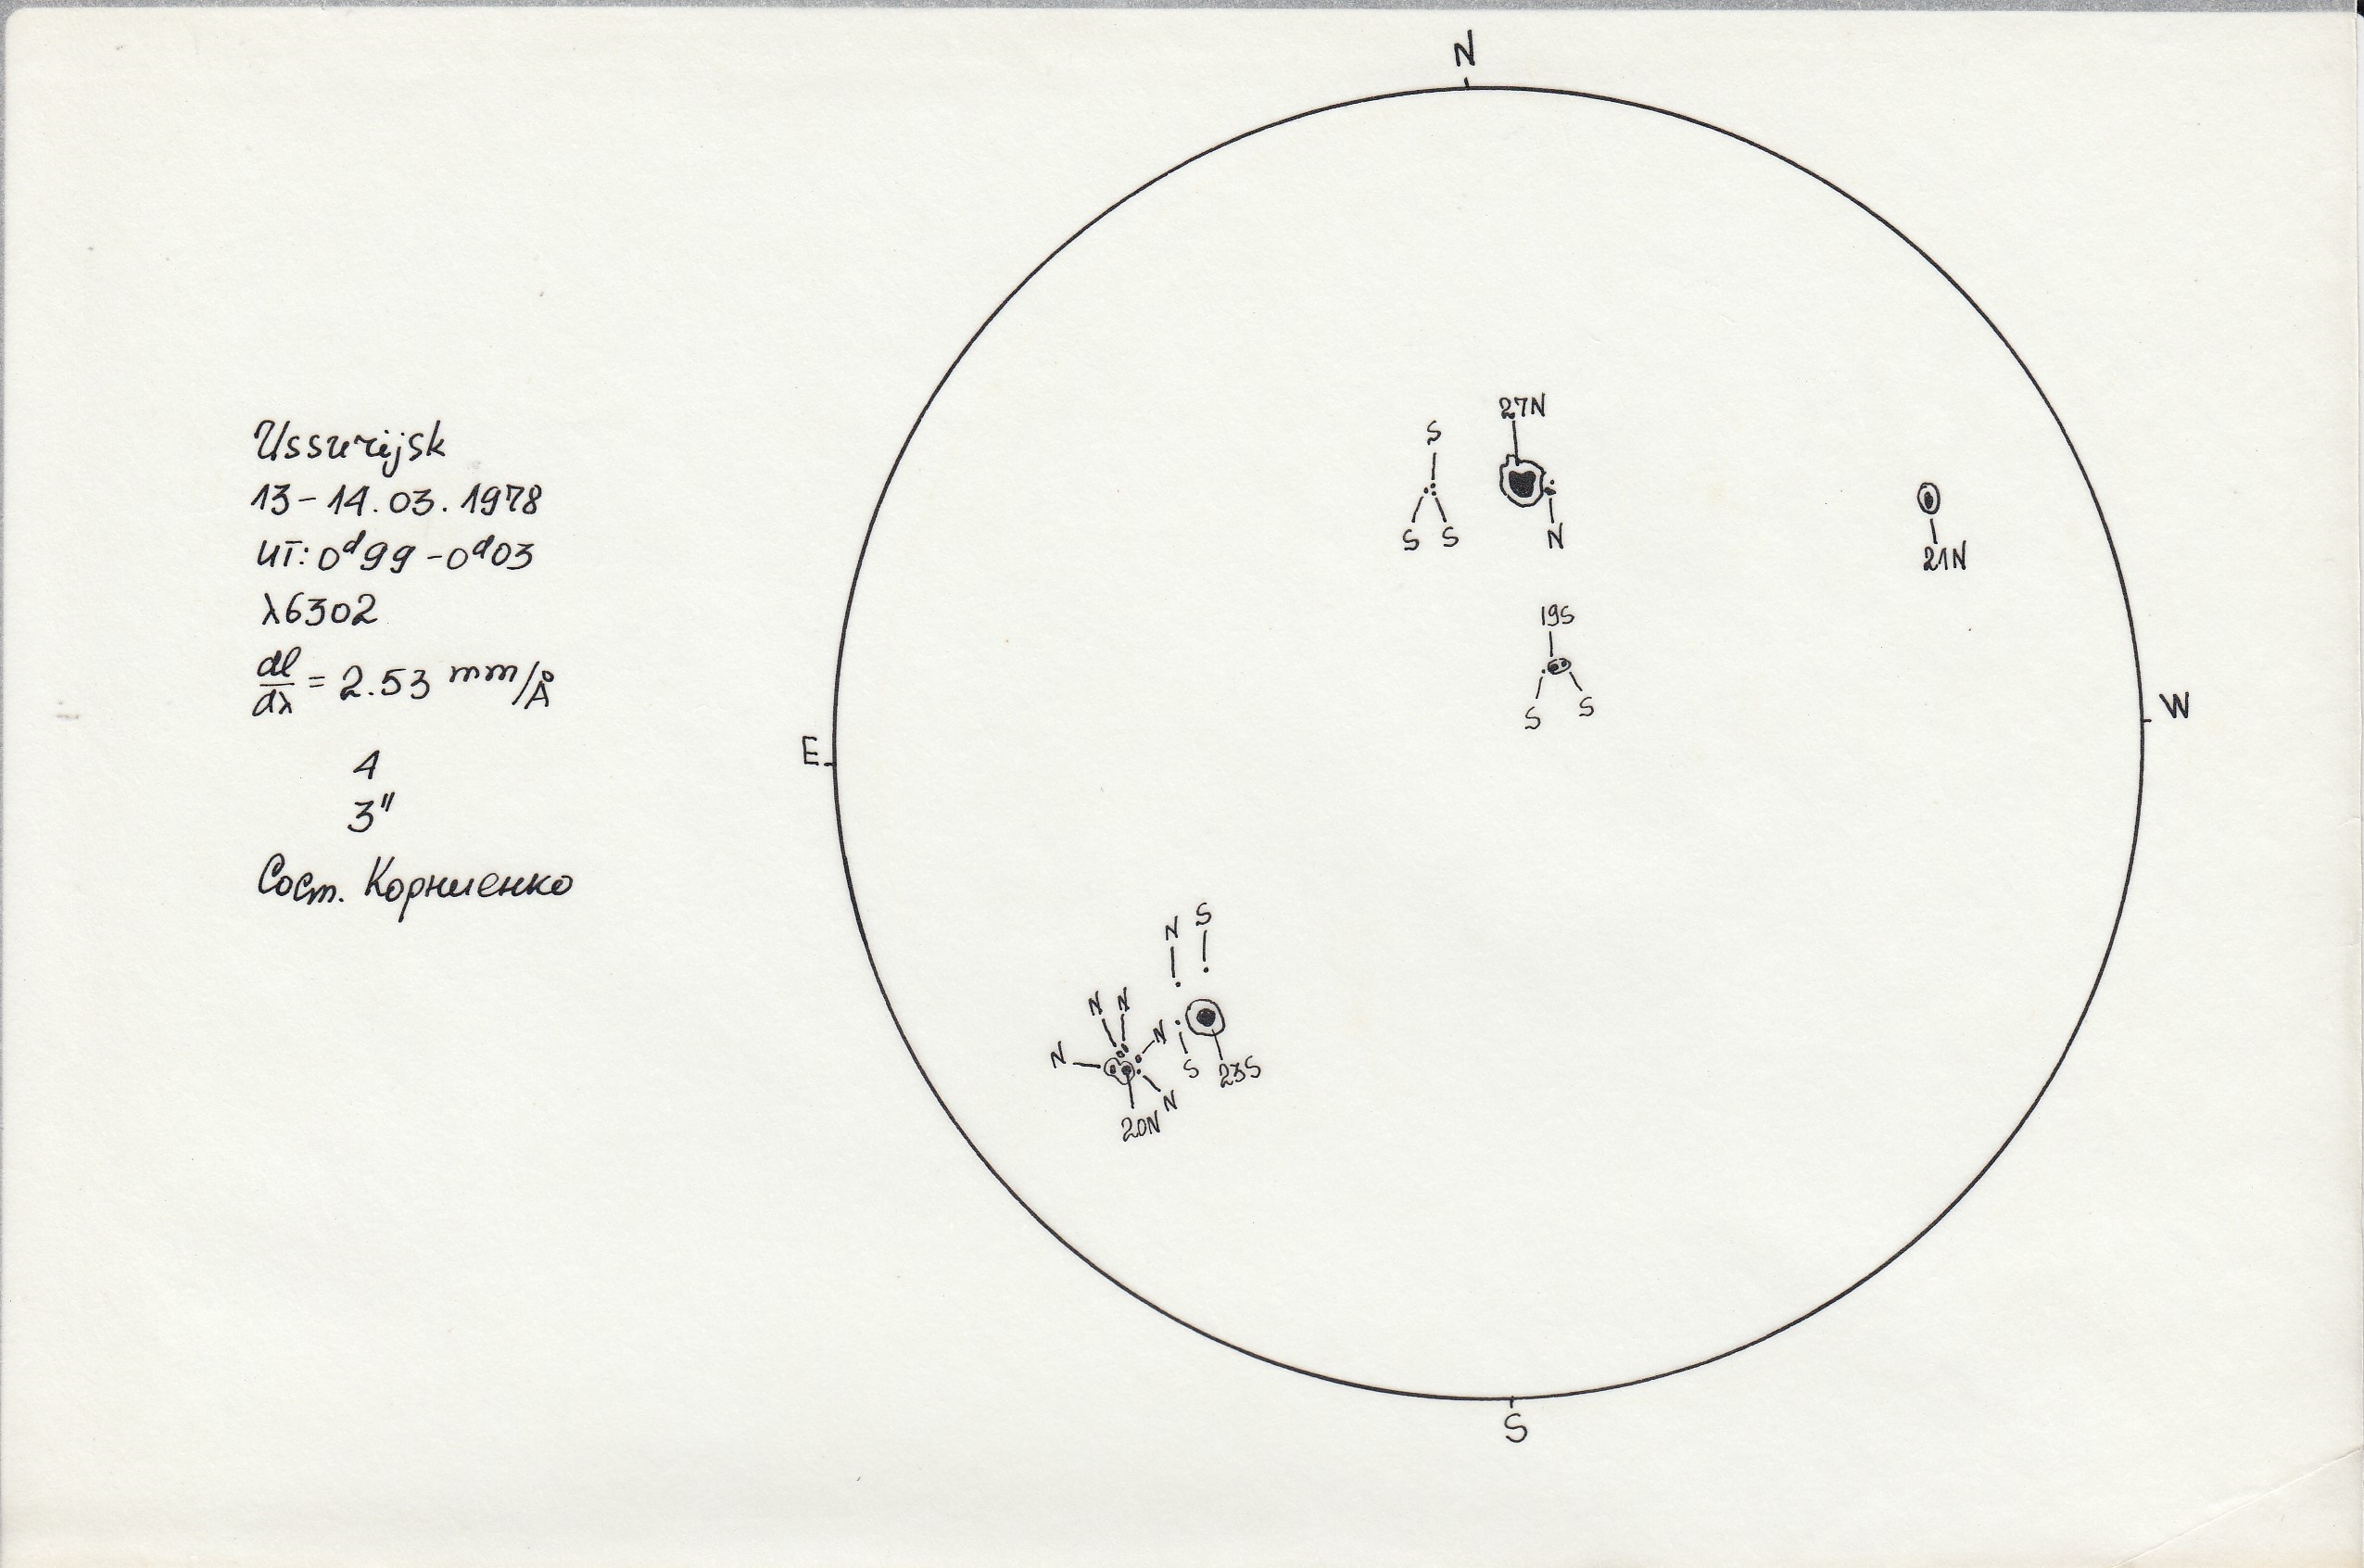 N
Ussurijsk
13-14.03.1978
UT: 0ᵈ99-0ᵈ03
λ6302
dl/dλ = 2.53 mm/Å
4
3"
Сост. Корниенко
27N
S
S S
N
21N
19S
S S
W
E
N S
N N
N
N
S
23S
N
20N
S